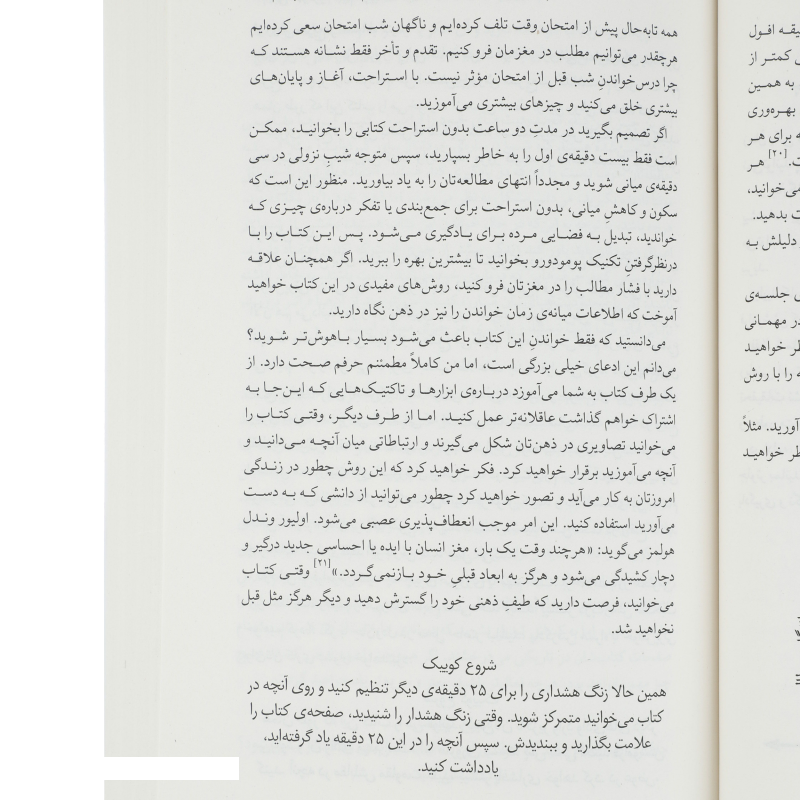 همه تابه‌حال پیش از امتحان وقت تلف کرده‌ایم و ناگهان شب امتحان سعی کرده‌ایم
هرچقدر می‌توانیم مطلب در مغزمان فرو کنیم. تقدم و تأخر فقط نشـانه هسـتند کـه
چرا درس‌خواندنِ شب قبل از امتحان مؤثر نیست. با اسـتراحت، آغـاز و پایان‌هـای
بیشتری خلق می‌کنید و چیزهای بیشتری می‌آموزید.
اگر تصمیم بگیرید در مدتِ دو ساعت بدون استراحت کتابی را بخوانیـد، ممکـن
است فقط بیست دقیقه‌ی اول را به خاطر بسپارید، سپس متوجه شیبِ نزولی در سی
دقیقه‌ی میانی شوید و مجدداً انتهای مطالعه‌تان را به یاد بیاورید. منظور این است که
سکون و کاهشِ میانی، بدون استراحت برای جمع‌بندی یا تفکر درباره‌ی چیـزی کـه
خواندید، تبدیل بـه فضـایی مـرده بـرای یـادگیری مـی‌شـود. پـس ایـن کتـاب را بـا
درنظرگرفتنِ تکنیک پومودورو بخوانید تا بیشترین بهره را ببرید. اگر همچنـان علاقـه
دارید با فشار مطالب را در مغزتان فرو کنید، روش‌های مفیدی در این کتاب خواهید
آموخت که اطلاعات میانه‌ی زمان خواندن را نیز در ذهن نگاه دارید.
می‌دانستید که فقط خواندن این کتاب باعث می‌شـود بسـیار بـاهوش‌تـر شـوید؟
می‌دانم این ادعای خیلی بزرگی است، اما من کاملاً مطمئنم حرفم صـحت دارد. از
یک طرف کتاب به شما می‌آموزد دربـاره‌ی ابزارهـا و تاکتیـک‌هـایی کـه ایـن‌جـا بـه
اشتراک خواهم گذاشت عاقلانه‌تر عمل کنیـد. امـا از طـرف دیگـر، وقتـی کتـاب را
می‌خوانید تصاویری در ذهن‌تان شکل می‌گیرند و ارتباطاتی میان آنچـه مـی‌دانیـد و
آنچه می‌آموزید برقرار خواهید کرد. فکر خواهید کرد که این روش چطور در زنـدگی
امروزتان به کار می‌آید و تصور خواهید کرد چطور می‌توانید از دانشی کـه بـه دسـت
می‌آورید استفاده کنید. این امر موجب انعطاف‌پذیری عصبی می‌شود. اولیور ونـدل
هولمز می‌گوید: «هرچند وقت یک بار، مغز انسان با ایده یا احساسی جدید درگیر و
دچار کشیدگی می‌شود و هرگز به ابعاد قبلیِ خـود بـازنمی‌گـردد.»[۲۱] وقتـی کتـاب
می‌خوانید، فرصت دارید که طیفِ ذهنی خود را گسترش دهید و دیگر هرگز مثل قبل
نخواهید شد.
شروع کوییک
همین حالا زنگ هشداری را برای ۲۵ دقیقه‌ی دیگر تنظیم کنید و روی آنچه در
کتاب می‌خوانید متمرکز شوید. وقتی زنگ هشدار را شنیدید، صفحه‌ی کتاب را
علامت بگذارید و ببندیدش. سپس آنچه را در این ۲۵ دقیقه یاد گرفته‌اید،
یادداشت کنید.
افـول
کمتـر از
به همـین
بهـره‌وری
برای هـر
[۲۰] هـر
می‌خوانید،
بدهید.
دلیلش بـه
جلسـه‌ی
مهمـانی
خواهیـد
را با روش
آورید. مثلاً
خواهیـد